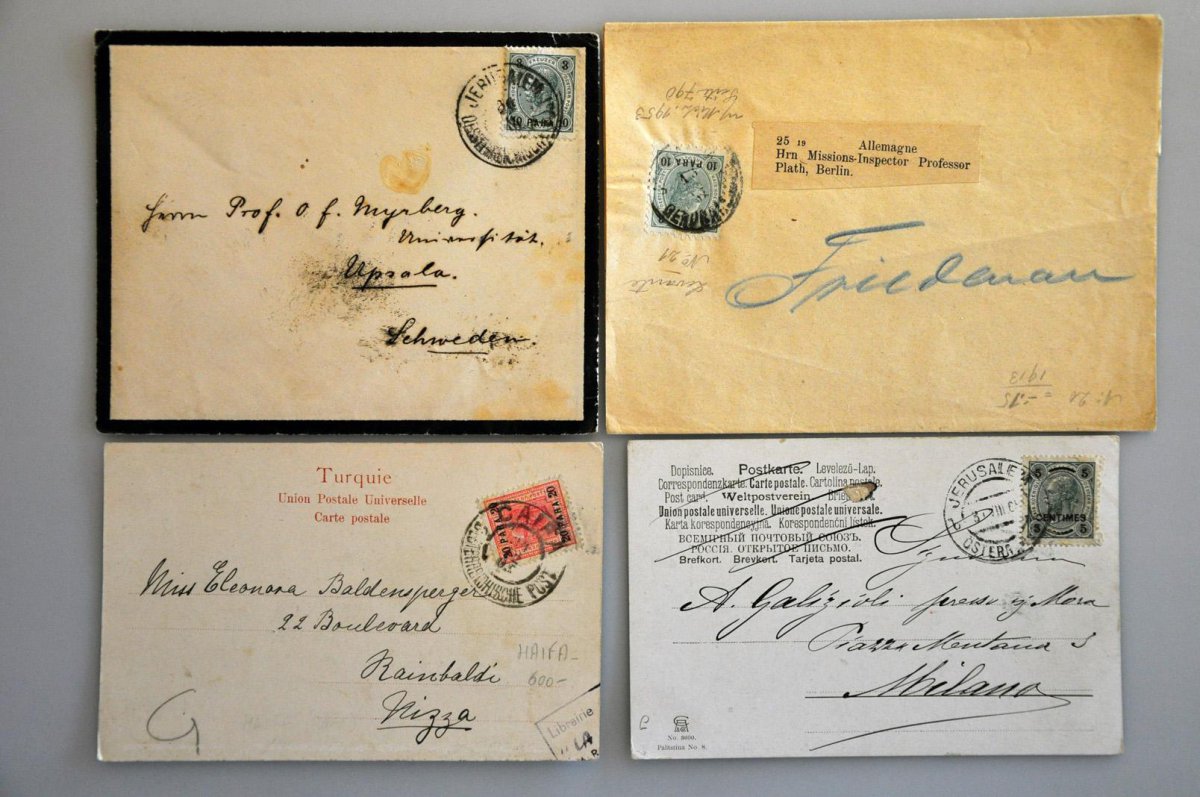 JERUSALEM
3
10 PARA 10
Herrn Prof. O. F. Myrberg.
Universität.
Upsala.
Schweden.
25 19 Allemagne
Hrn Missions-Inspector Professor
Plath, Berlin.
10 PARA 10
Friedenau
Levante
No 21
1913
Turquie
Union Postale Universelle
Carte postale
20 PARA 20
OESTERREICHISCHE POST
Miss Eleonora Baldensperger
22 Boulevard
Rainbaldi
Nizza
HAIFA-
600-
Librairie
LA
Dopisnice. Postkarte. Levelező-Lap.
Correspondenzkarte. Carte postale. Cartolina postale.
Post card. Weltpostverein
Union postale universelle. Unione postale universale.
Karta korespondencyjna. Korespondenční lístek.
ВСЕМІРНЫЙ ПОЧТОВЫЙ СОЮЗЪ.
РОССІЯ. ОТКРЫТОЕ ПИСЬМО.
Brefkort. Brevkort. Tarjeta postal.
JERUSALEM
5 5
CENTIMES
5 5
A. Galizioli presso Mora
Piazza Mentana 3
Milano
No. 3600.
Palästina No. 8.